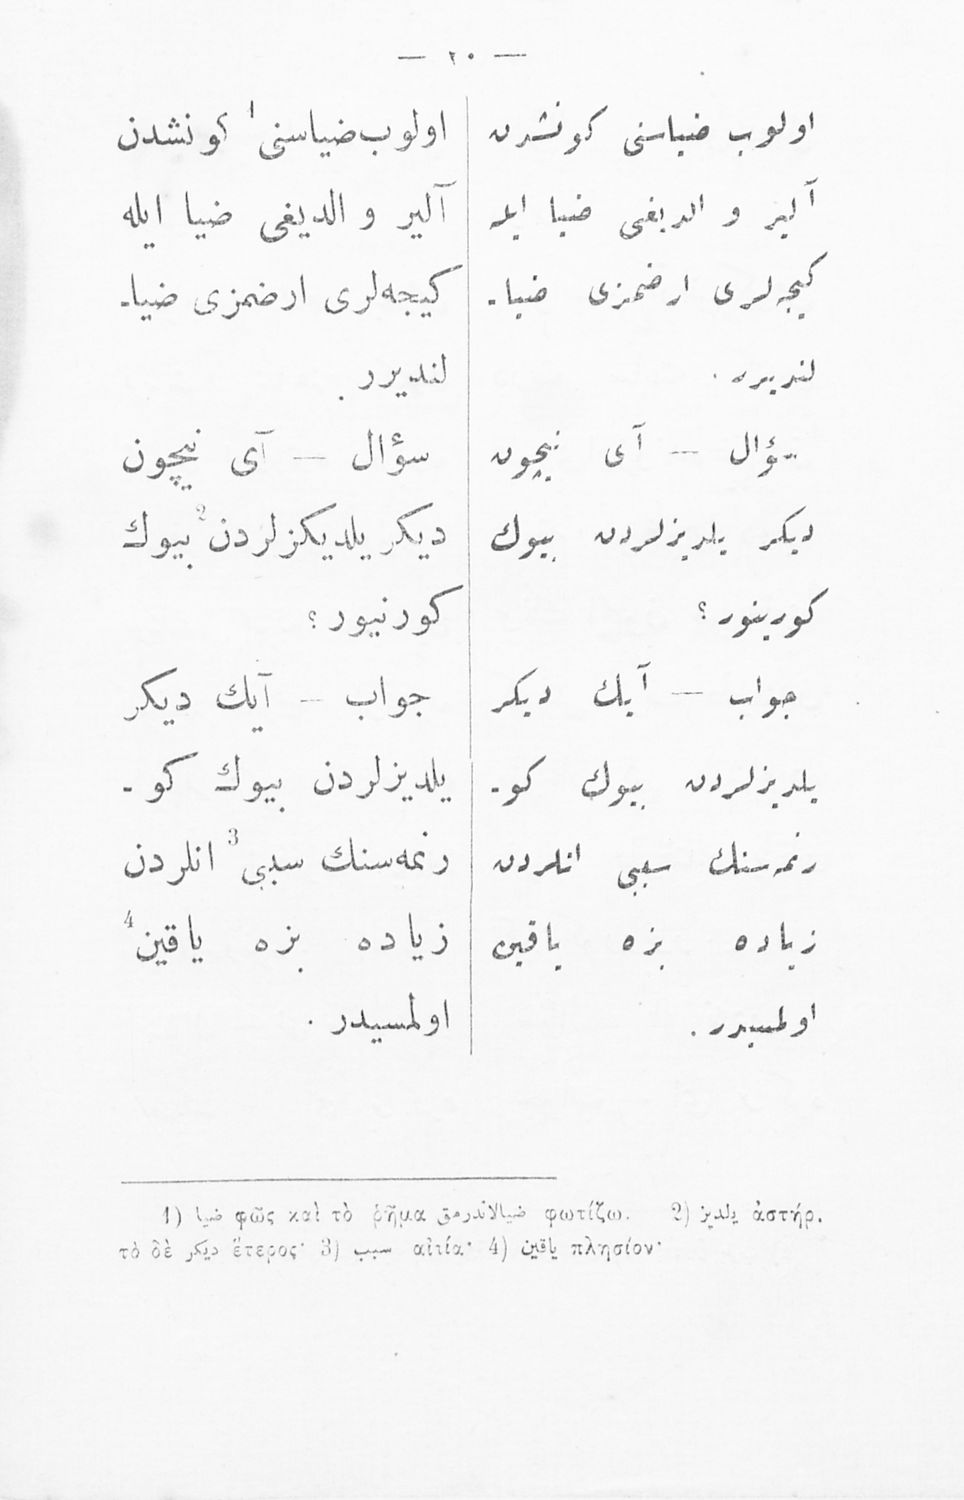 — ٢٠ —
اولوب ضياسنى كونشدن
آلير و الديغى ضيا ايله
كيجه‌لرى ارضمزى ضيا-
لنديرر .
سؤال — آى نيچون
ديكر يلديزلردن بيوك
كورينور ؟
جواب — آيك ديكر
يلديزلردن بيوك كو-
رنمه‌سنك سببى انلردن
زياده بزه ياقين
اولمسيدر .
اولوب ضياسنى 1 كونشدن
آلير و الديغى ضيا ايله
كيجه‌لرى ارضمزى ضيا-
لنديرر .
سؤال — آى نيچون
ديكر يلديكزلردن 2 بيوك
كورنيور ؟
جواب — آيك ديكر
يلديزلردن بيوك كو-
رنمه‌سنك سببى 3 انلردن
زياده بزه ياقين 4
اولمسيدر .
1) ضيا φῶς καὶ τὸ ῥῆμα ضيالاندرمق φωτίζω. 2) يلديز ἀστήρ.
τὸ δὲ ديكر ἕτερος· 3) سبب αἰτία· 4) ياقين πλησίον·